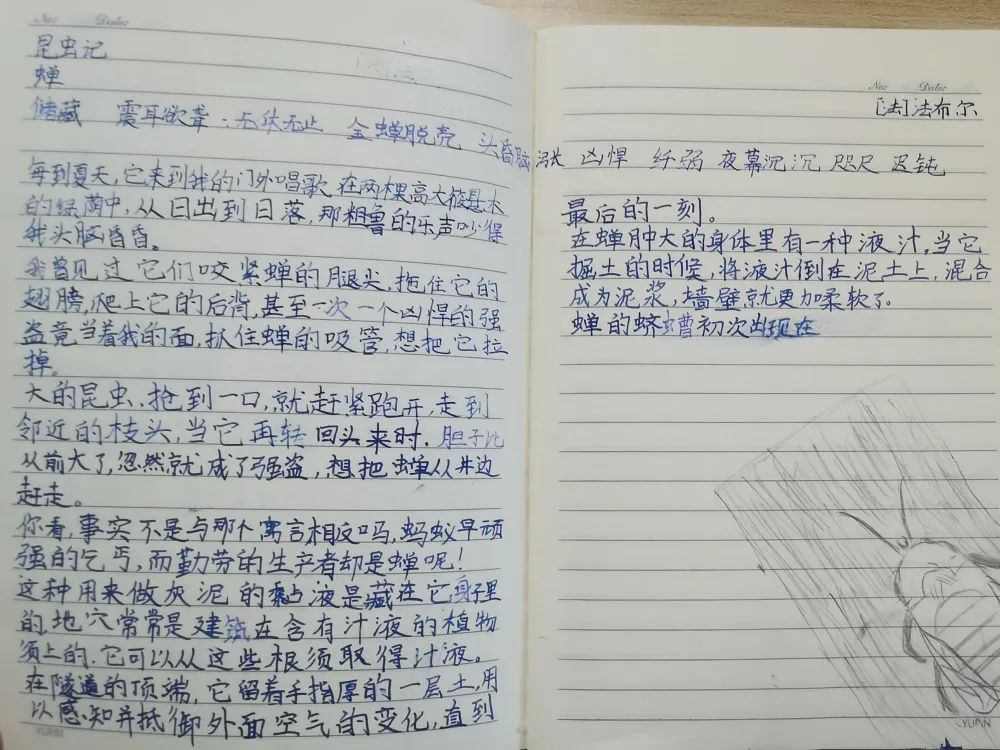 No:  Date:
昆虫记
蝉
储藏 震耳欲聋 无休无止 金蝉脱壳 头昏脑
每到夏天,它来到我的门外唱歌,在两棵高大筱悬木
的绿荫中,从日出到日落,那粗鲁的乐声吵得
我头脑昏昏。
我曾见过它们咬紧蝉的腿尖,拖住它的
翅膀,爬上它的后背,甚至一次一个凶悍的强
盗竟当着我的面,抓住蝉的吸管,想把它拉
掉。
大的昆虫,抢到一口,就赶紧跑开,走到
邻近的枝头,当它再转回头来时,胆子比
从前大了,忽然就成了强盗,想把蝉从井边
赶走。
你看,事实不是与那个寓言相反吗,蚂蚁早顽
强的乞丐,而勤劳的生产者却是蝉呢!
这种用来做灰泥的黏液是藏在它身子里
的,地穴常常是建筑在含有汁液的植物
须上的,它可以从这些根须取得汁液。
在隧道的顶端,它留着手指厚的一层土,用
以感知并抵御外面空气的变化,直到
YUPIN
No:  Date:
[法]法布尔
涨 凶悍 纤弱 夜幕沉沉 咫尺 迟钝
最后的一刻。
在蝉肿大的身体里有一种液汁,当它
掘土的时候,将液汁倒在泥土上,混合
成为泥浆,墙壁就更加柔软了。
蝉的蛴螬初次出现在
YUPIN